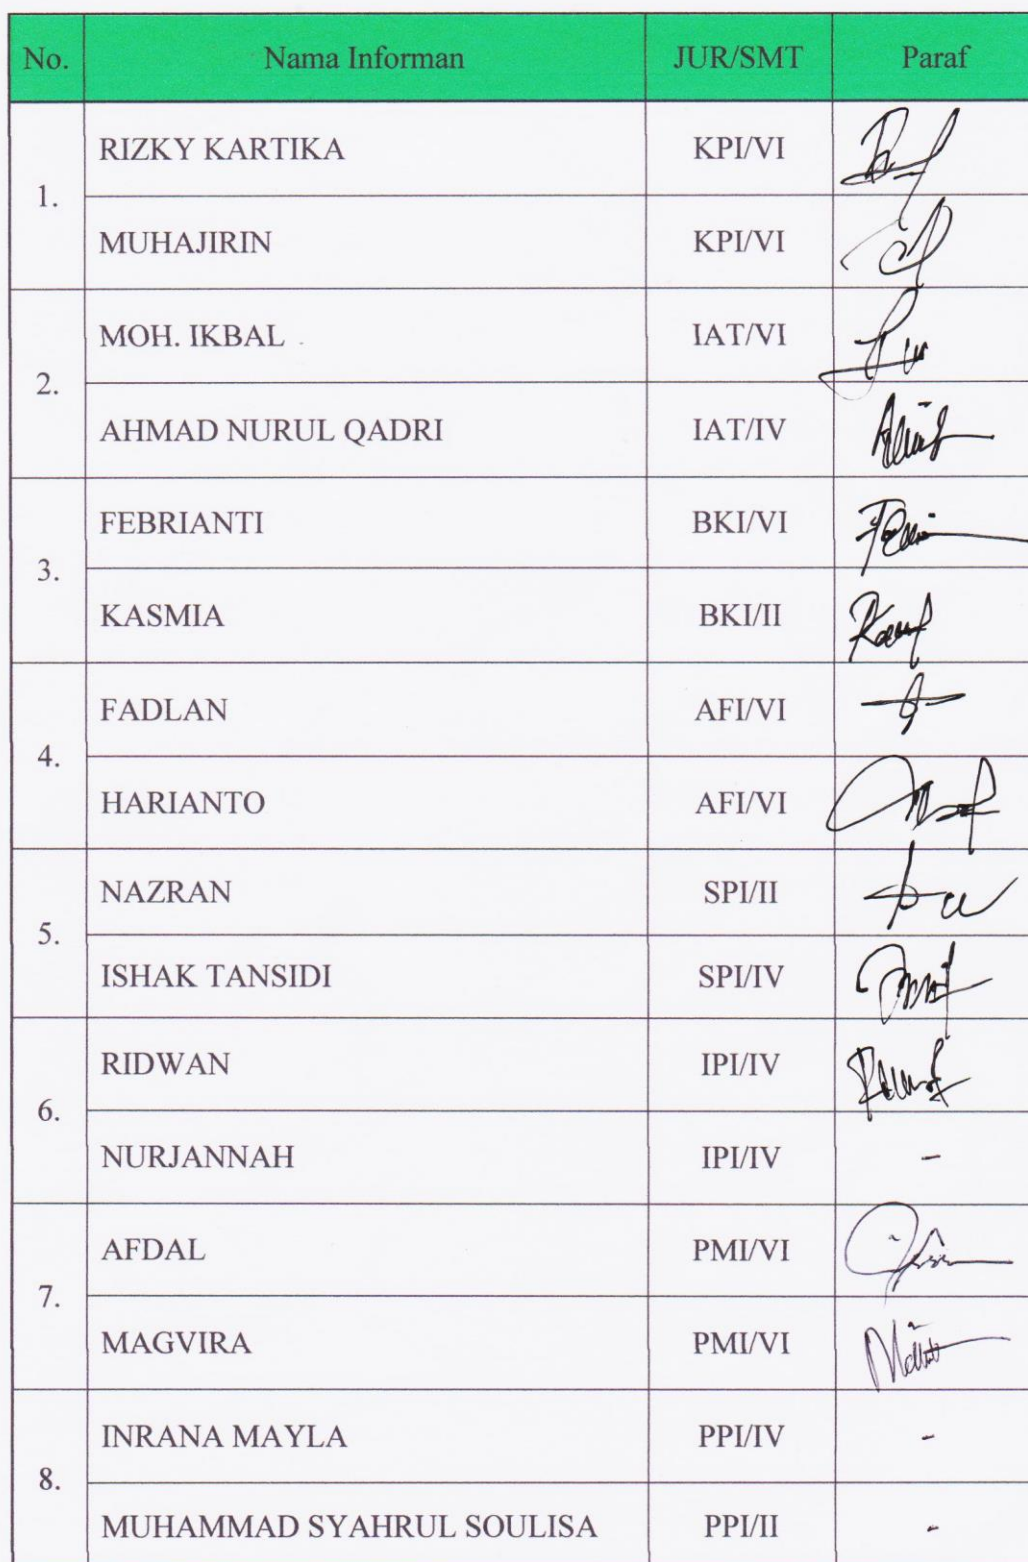 No. Nama Informan JUR/SMT Paraf
1. RIZKY KARTIKA KPI/VI
MUHAJIRIN KPI/VI
2. MOH. IKBAL IAT/VI
AHMAD NURUL QADRI IAT/IV
3. FEBRIANTI BKI/VI
KASMIA BKI/II
4. FADLAN AFI/VI
HARIANTO AFI/VI
5. NAZRAN SPI/II
ISHAK TANSIDI SPI/IV
6. RIDWAN IPI/IV
NURJANNAH IPI/IV -
7. AFDAL PMI/VI
MAGVIRA PMI/VI
8. INRANA MAYLA PPI/IV -
MUHAMMAD SYAHRUL SOULISA PPI/II -